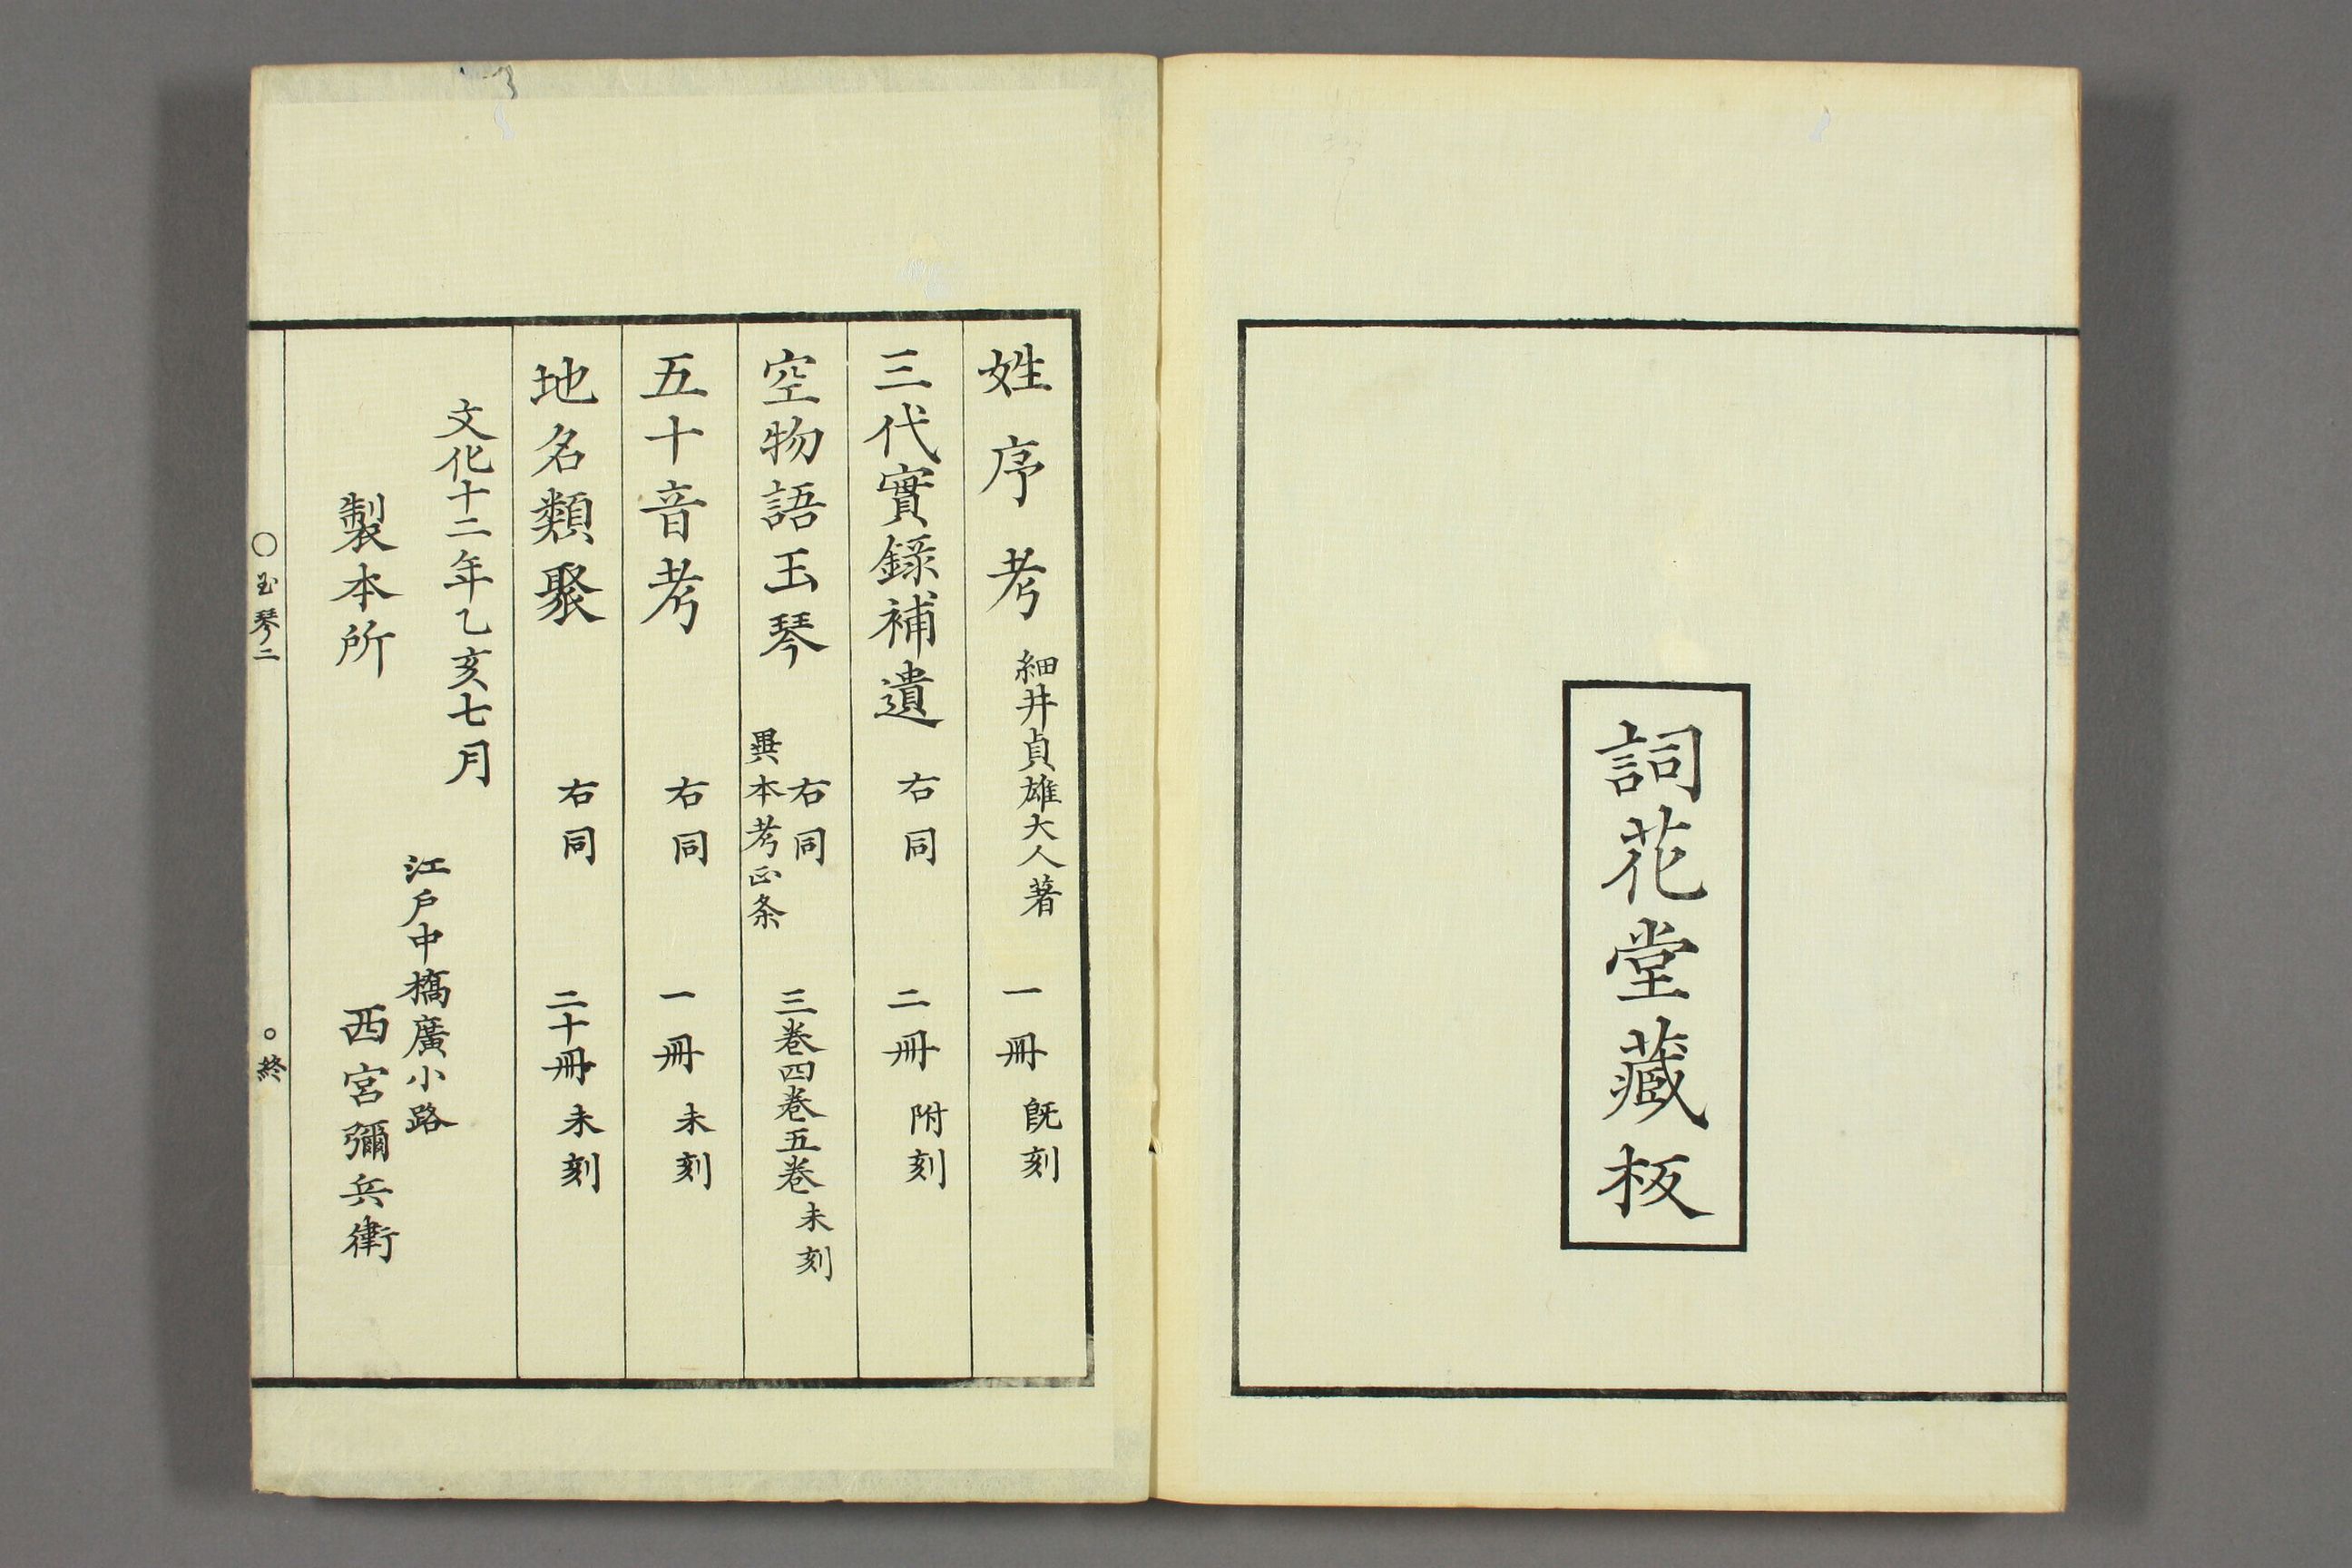 詞花堂藏板
姓序考 細井貞雄大人著 一冊 既刻
三代實録補遺 右同 二冊 附刻
空物語玉琴 右同 三卷四卷五卷 未刻
異本考正条
五十音考 右同 一冊 未刻
地名類聚 右同 二十冊 未刻
文化十二年乙亥七月
江戸中橋廣小路
製本所 西宮彌兵衛
○玉琴二 ○終